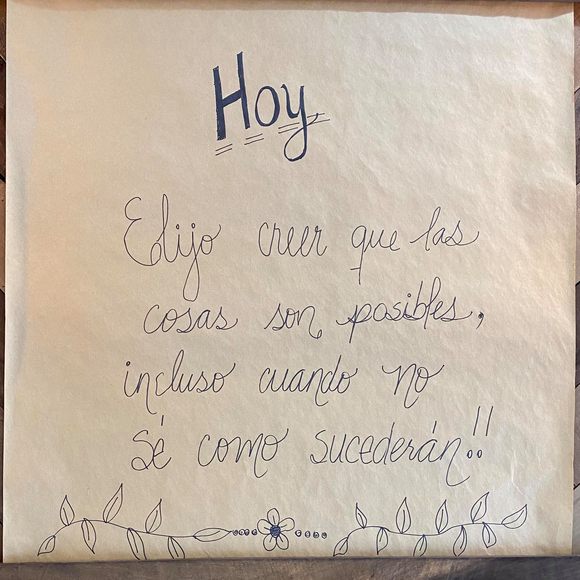 Hoy
Elijo creer que las
cosas son posibles,
incluso cuando no
sé como sucederán!!